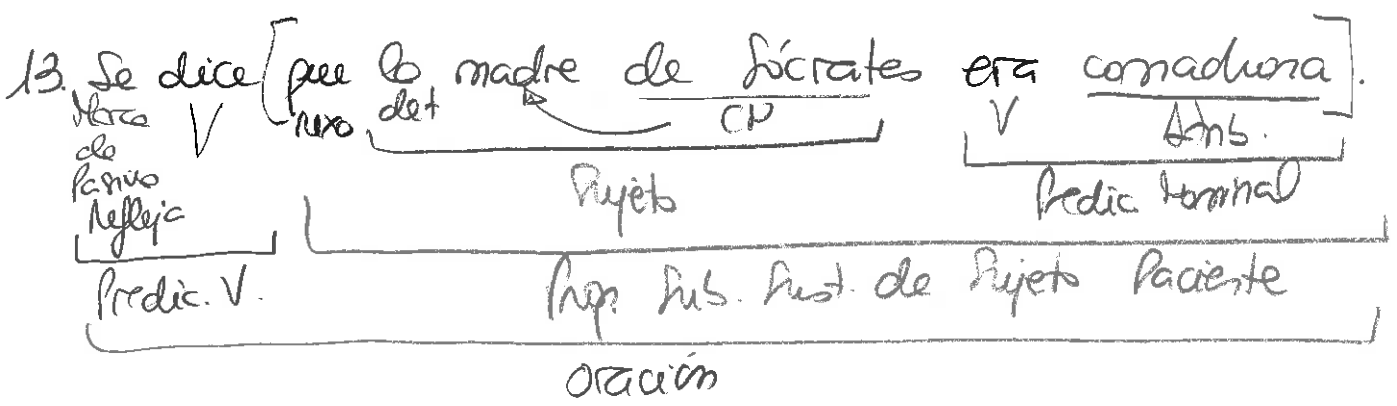 13. Se dice [que la madre de Sócrates era comadrona].
Marca de Pasiva Refleja V nexo det CN V Atrib.
Sujeto Predic. Nominal
Predic. V. Prop. Sub. Sust. de Sujeto Paciente
oración